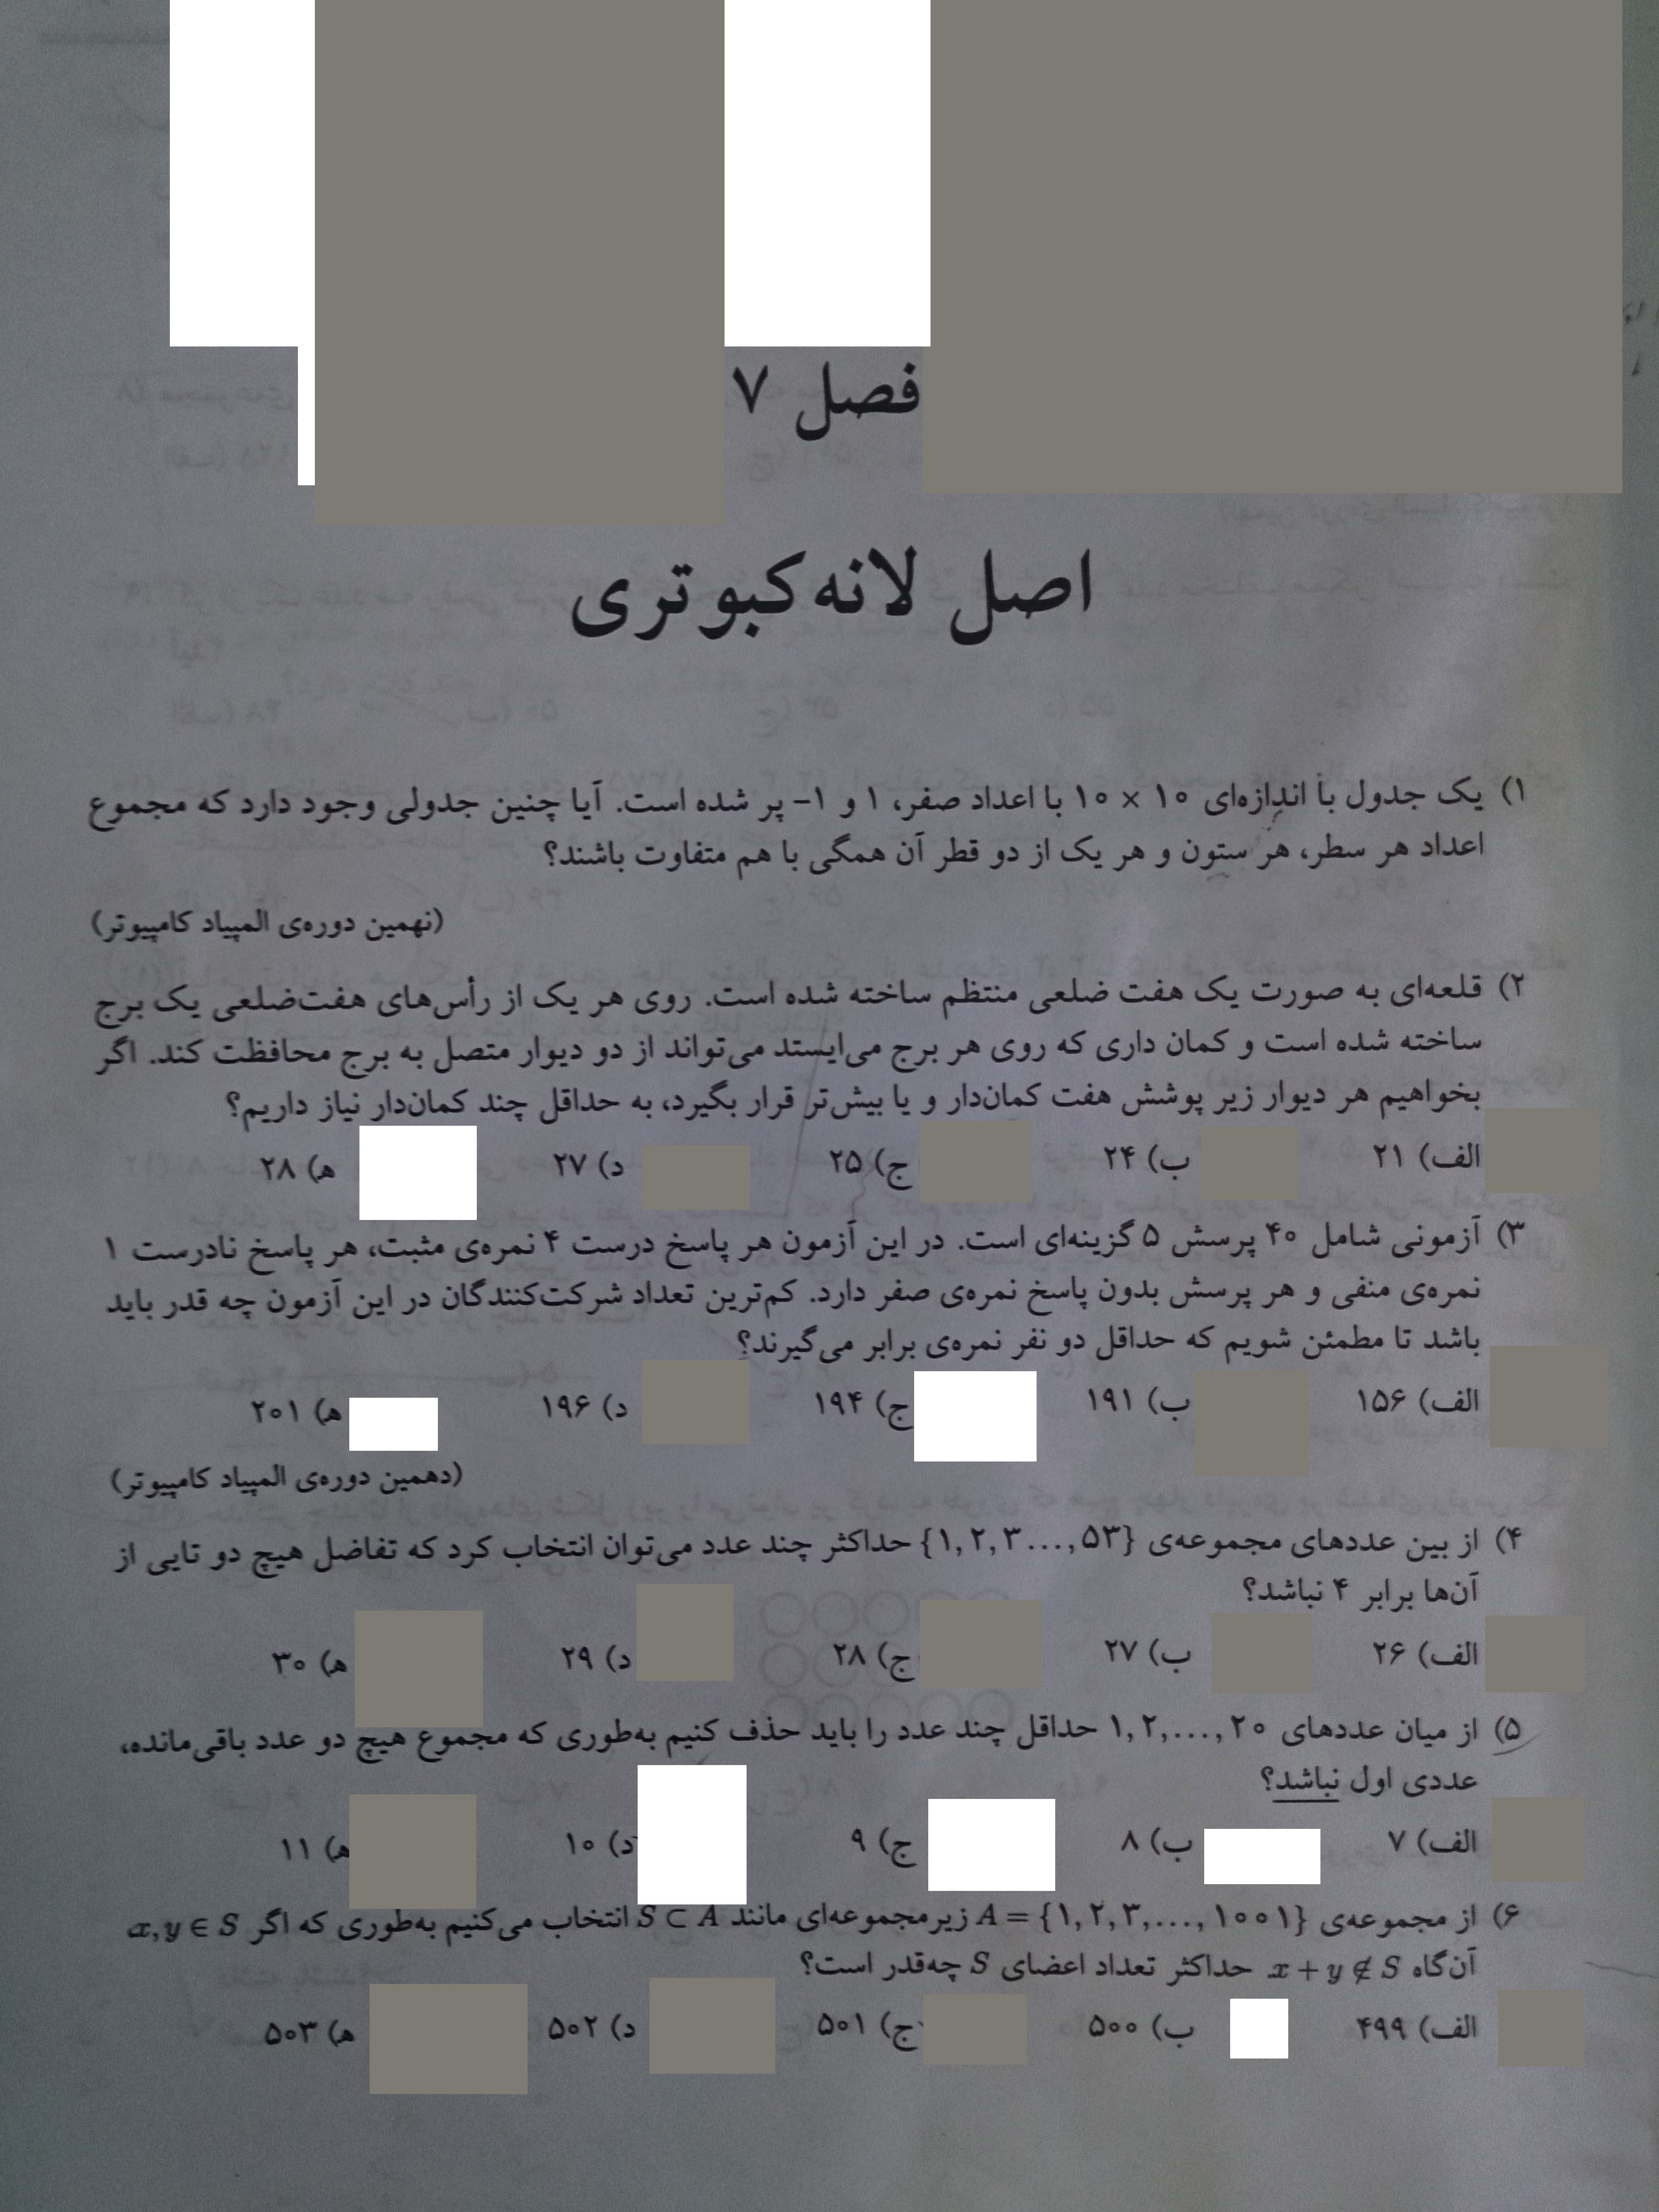 فصل ۷
اصل لانه‌کبوتری
۱) یک جدول با اندازه‌ای ۱۰ × ۱۰ با اعداد صفر، ۱ و ۱− پر شده است. آیا چنین جدولی وجود دارد که مجموع
اعداد هر سطر، هر ستون و هر یک از دو قطر آن همگی با هم متفاوت باشند؟
(نهمین دوره‌ی المپیاد کامپیوتر)
۲) قلعه‌ای به صورت یک هفت ضلعی منتظم ساخته شده است. روی هر یک از رأس‌های هفت‌ضلعی یک برج
ساخته شده است و کمان داری که روی هر برج می‌ایستد می‌تواند از دو دیوار متصل به برج محافظت کند. اگر
بخواهیم هر دیوار زیر پوشش هفت کمان‌دار و یا بیش‌تر قرار بگیرد، به حداقل چند کمان‌دار نیاز داریم؟
الف) ۲۱ ب) ۲۴ ج) ۲۵ د) ۲۷ ه) ۲۸
۳) آزمونی شامل ۴۰ پرسش ۵ گزینه‌ای است. در این آزمون هر پاسخ درست ۴ نمره‌ی مثبت، هر پاسخ نادرست ۱
نمره‌ی منفی و هر پرسش بدون پاسخ نمره‌ی صفر دارد. کم‌ترین تعداد شرکت‌کنندگان در این آزمون چه قدر باید
باشد تا مطمئن شویم که حداقل دو نفر نمره‌ی برابر می‌گیرند؟
الف) ۱۵۶ ب) ۱۹۱ ج) ۱۹۴ د) ۱۹۶ ه) ۲۰۱
(دهمین دوره‌ی المپیاد کامپیوتر)
۴) از بین عددهای مجموعه‌ی {۱, ۲, ۳..., ۵۳} حداکثر چند عدد می‌توان انتخاب کرد که تفاضل هیچ دو تایی از
آن‌ها برابر ۴ نباشد؟
الف) ۲۶ ب) ۲۷ ج) ۲۸ د) ۲۹ ه) ۳۰
۵) از میان عددهای ۱, ۲, ..., ۲۰ حداقل چند عدد را باید حذف کنیم به‌طوری که مجموع هیچ دو عدد باقی‌مانده،
عددی اول نباشد؟
الف) ۷ ب) ۸ ج) ۹ د) ۱۰ ه) ۱۱
۶) از مجموعه‌ی A = {۱, ۲, ۳, ..., ۱۰۰۱} زیرمجموعه‌ای مانند S ⊂ A انتخاب می‌کنیم به‌طوری که اگر x, y ∈ S
آن‌گاه x + y ∉ S. حداکثر تعداد اعضای S چه‌قدر است؟
الف) ۴۹۹ ب) ۵۰۰ ج) ۵۰۱ د) ۵۰۲ ه) ۵۰۳